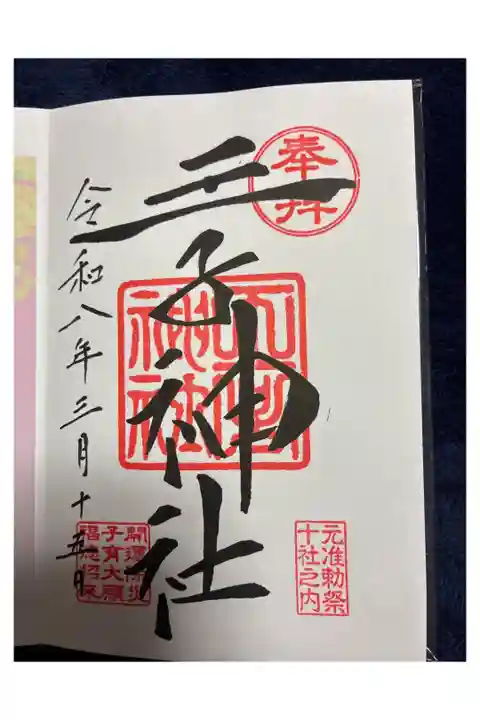 奉拝
王子神社
令和八年三月十五日
元准勅祭
十社之内
開運除災
子育大願
福徳招来